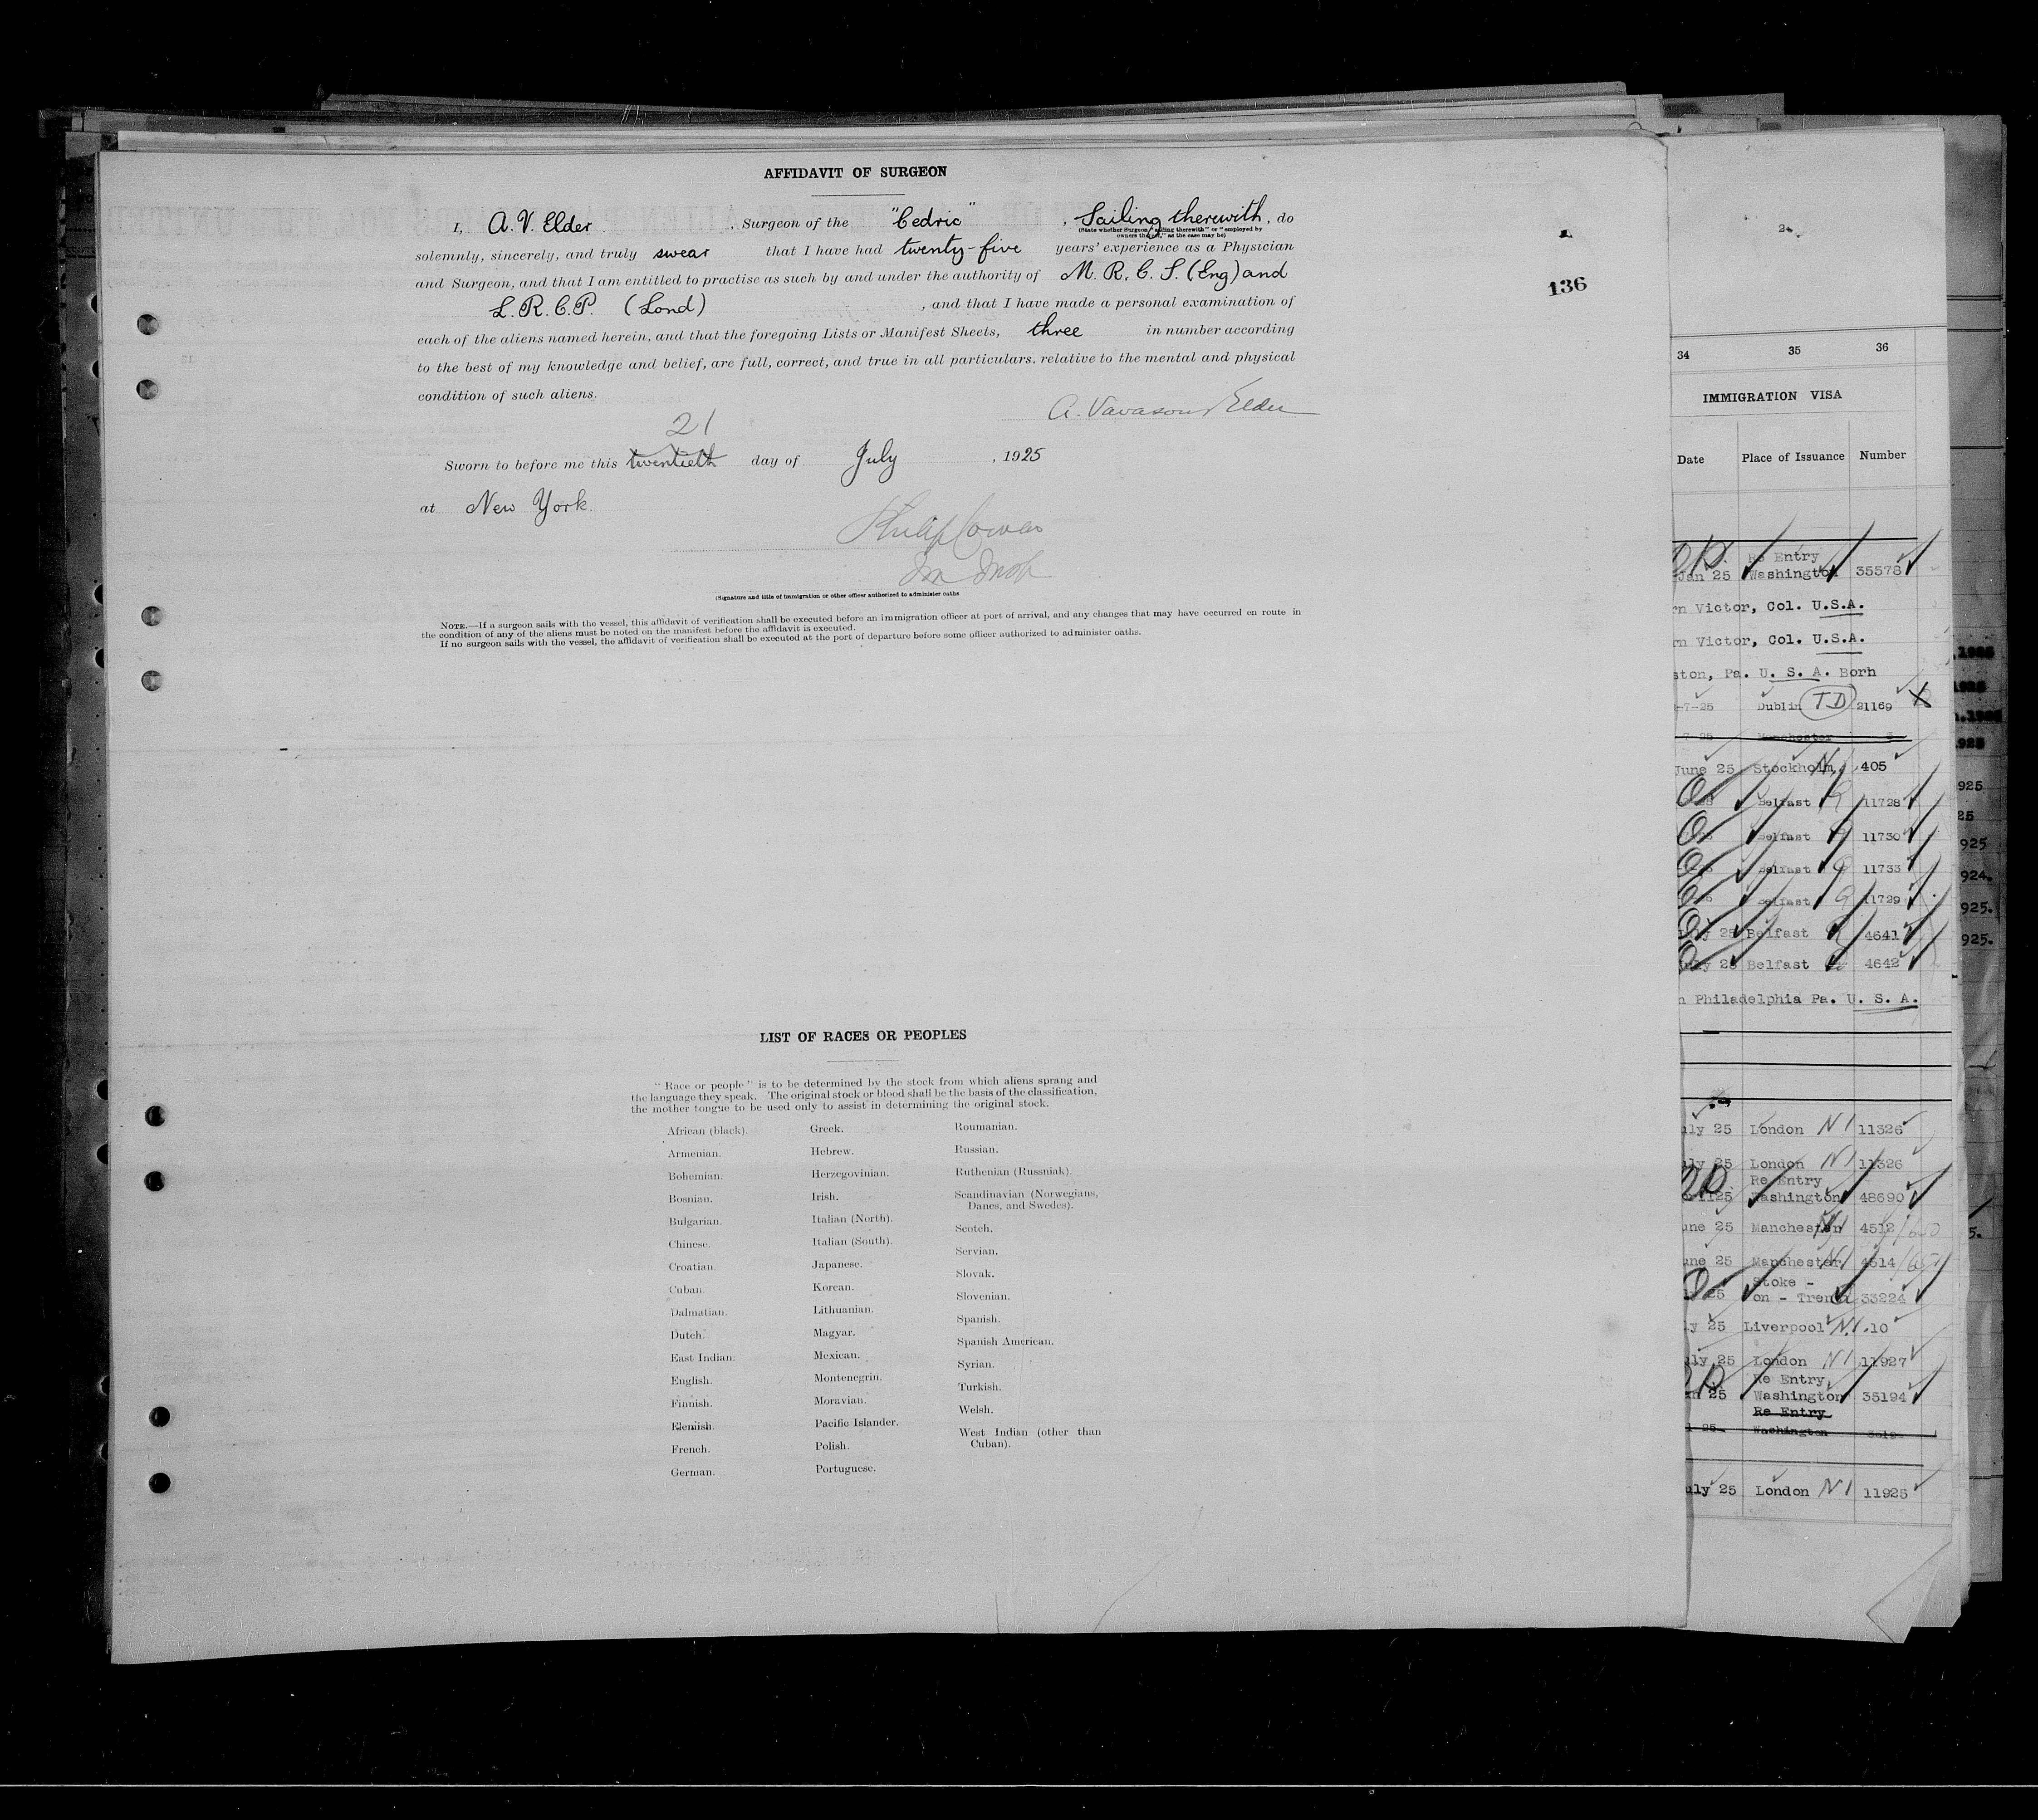 AFFIDAVIT OF SURGEON
I, A. V. Elder, Surgeon of the "Cedric", Sailing therewith, do
(State whether Surgeon "sailing therewith" or "employed by
owners thereof," as the case may be)
solemnly, sincerely, and truly swear that I have had twenty-five years' experience as a Physician
and Surgeon, and that I am entitled to practise as such by and under the authority of M. R. C. S. (Eng) and
L. R. C. P. (Lond), and that I have made a personal examination of
each of the aliens named herein, and that the foregoing Lists or Manifest Sheets, three in number according
to the best of my knowledge and belief, are full, correct, and true in all particulars, relative to the mental and physical
condition of such aliens.
A. Vavasour Elder
21
Sworn to before me this twentieth day of July, 1925
at New York.
Philip Cowen
(Signature and title of immigration or other officer authorized to administer oaths
NOTE.—If a surgeon sails with the vessel, this affidavit of verification shall be executed before an immigration officer at port of arrival, and any changes that may have occurred en route in
the condition of any of the aliens must be noted on the manifest before the affidavit is executed.
If no surgeon sails with the vessel, the affidavit of verification shall be executed at the port of departure before some officer authorized to administer oaths.
136
LIST OF RACES OR PEOPLES
"Race or people" is to be determined by the stock from which aliens sprang and
the language they speak. The original stock or blood shall be the basis of the classification,
the mother tongue to be used only to assist in determining the original stock.
African (black).
Armenian.
Bohemian.
Bosnian.
Bulgarian.
Chinese.
Croatian.
Cuban.
Dalmatian.
Dutch.
East Indian.
English.
Finnish.
Flemish.
French.
German.
Greek.
Hebrew.
Herzegovinian.
Irish.
Italian (North).
Italian (South).
Japanese.
Korean.
Lithuanian.
Magyar.
Mexican.
Montenegrin.
Moravian.
Pacific Islander.
Polish.
Portuguese.
Roumanian.
Russian.
Ruthenian (Russniak).
Scandinavian (Norwegians,
Danes, and Swedes).
Scotch.
Servian.
Slovak.
Slovenian.
Spanish.
Spanish American.
Syrian.
Turkish.
Welsh.
West Indian (other than
Cuban).
34 35 36
IMMIGRATION VISA
Date Place of Issuance Number
Re Entry
Jan 25 Washington 35578
rn Victor, Col. U.S.A.
rn Victor, Col. U.S.A.
ston, Pa. U. S. A. Born
-7-25 Dublin TD 21169
June 25 Stockholm 405
Belfast 11728
Belfast 11730
Belfast 11733
Belfast 11729
July 25 Belfast 4641
July 25 Belfast 4642
n Philadelphia Pa. U. S. A.
uly 25 London NI 11326
uly 25 London NI 11326
Re Entry
25 Washington 48690
une 25 Manchester 4512
une 25 Manchester 4514
Stoke -
25 on - Trent 33224
ly 25 Liverpool N.I. 10
uly 25 London NI 11927
Re Entry
25 Washington 35194
Re Entry
Washington
uly 25 London NI 11925
925
25
925
924.
925.
925.